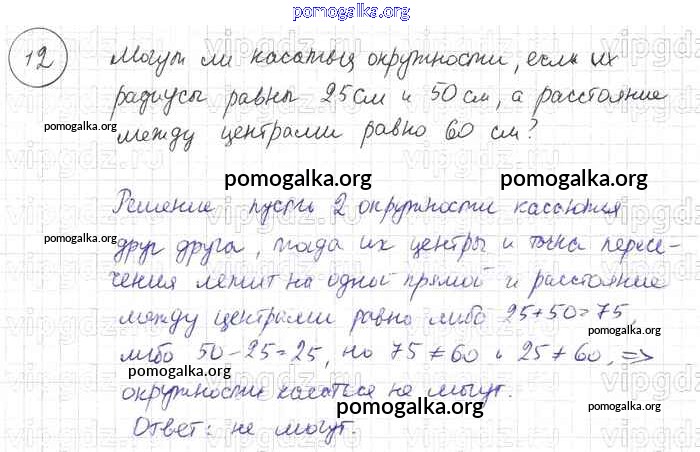 pomogalka.org
12 Могут ли касаться окружности, если их
радиусы равны 25 см и 50 см, а расстояние
pomogalka.org между центрами равно 60 см?
pomogalka.org pomogalka.org
Решение пусть 2 окружности касаются
pomogalka.org друг друга, тогда их центры и точка пересе-
чения лежит на одной прямой и расстояние
между центрами равно либо 25+50=75,
pomogalka.org
либо 50-25=25, но 75≠60 и 25≠60, =>
pomogalka.org
окружности касаться не могут.
pomogalka.org pomogalka.org
Ответ: не могут.